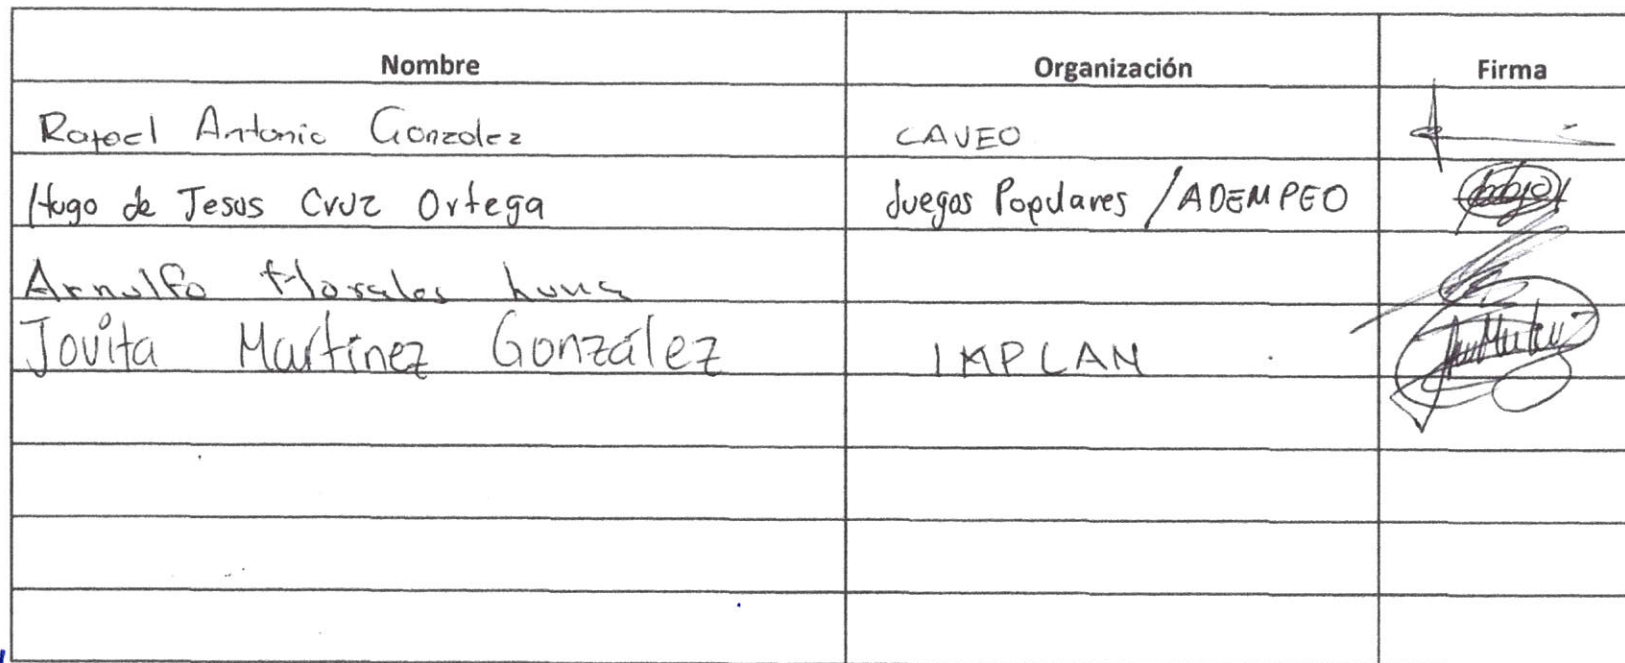 Nombre Organización Firma
Rafael Antonio Gonzalez CAVEO
Hugo de Jesus Cruz Ortega Juegos Populares / ADEMPEO
Arnulfo Morales Luna
Jovita Martínez González IMPLAN